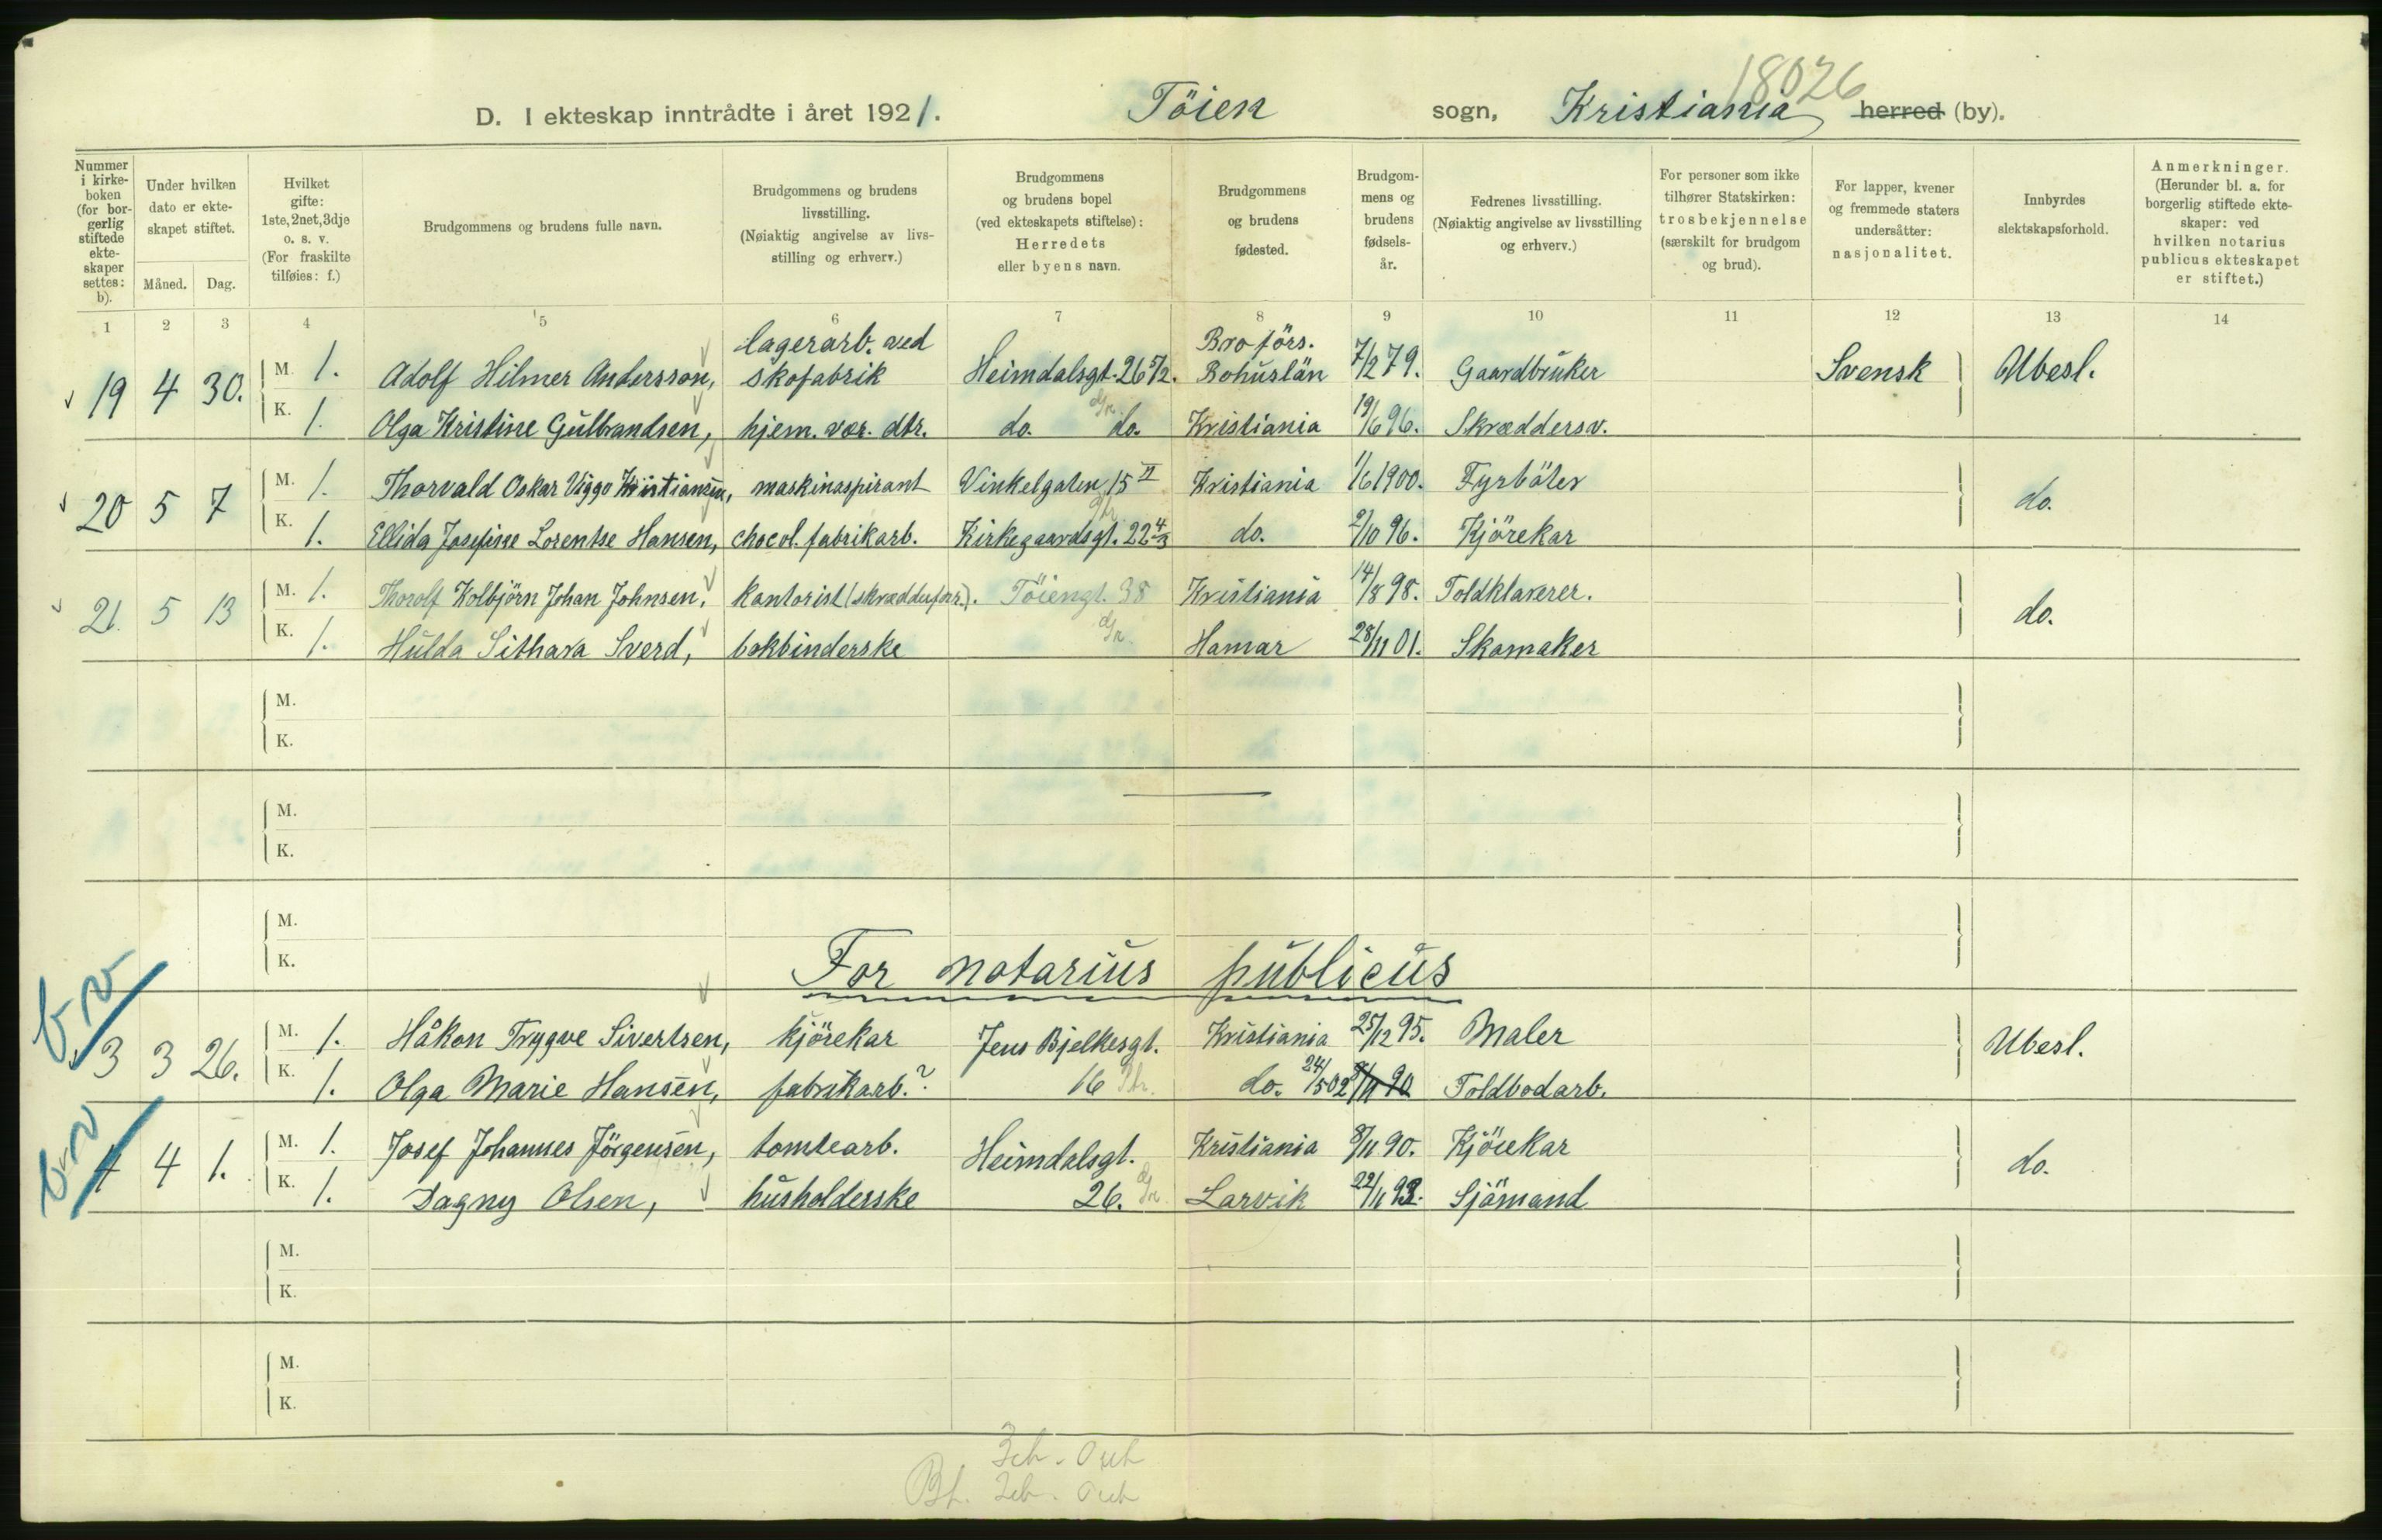 18026
D. I ekteskap inntrådte i året 1921. Töien sogn, Kristiania herred (by).
Nummer i kirke-boken (for bor-gerlig stiftede ekte-skaper settes: b).
Under hvilken dato er ekte-skapet stiftet.
Måned. Dag.
Hvilket gifte: 1ste, 2net, 3dje o. s. v. (For fraskilte tilføies: f.)
Brudgommens og brudens fulle navn.
Brudgommens og brudens livsstilling. (Nøiaktig angivelse av livs-stilling og erhverv.)
Brudgommens og brudens bopel (ved ekteskapets stiftelse): Herredets eller byens navn.
Brudgommens og brudens fødested.
Brudgom-mens og brudens fødsels-år.
Fedrenes livsstilling. (Nøiaktig angivelse av livsstilling og erhverv.)
For personer som ikke tilhører Statskirken: trosbekjennelse (særskilt for brudgom og brud).
For lapper, kvener og fremmede staters undersåtter: nasjonalitet.
Innbyrdes slektskapsforhold.
Anmerkninger. (Herunder bl. a. for borgerlig stiftede ekte-skaper: ved hvilken notarius publicus ekteskapet er stiftet.)
1 2 3 4 5 6 7 8 9 10 11 12 13 14
lagerarb. ved Broförs.
19 4 30. M. 1. Adolf Hilmer Andersson, skofabrik Heimdalsgt. 26 5/2. Bohuslän 7/2 79. Gaardbruker Svensk Ubesl.
K. 1. Olga Kristine Gulbrandsen, hjem. vær. dtr. do. do. Kristiania 19/6 96. Skræddersv.
20 5 7 M. 1. Thorvald Oskar Viggo Kristiansen, maskinaspirant Vinkelgaten 15 II Kristiania 1/6 1900. Fyrböter do.
K. 1. Ellida Josefine Lorentse Hansen, chocol. fabrikarb. Kirkegaardsgt. 22 4/3 do. 2/10 96. Kjörekar
21. 5 13 M. 1. Thorolf Kolbjörn Johan Johnsen, kontorist (skrædderforr.). Töiengt. 38 Kristiania 14/8 98. Toldklarerer. do.
K. 1. Hulda Sithara Sverd, bokbinderske Hamar 28/11 01. Skomaker
M.
K.
M.
K.
M.
K.
For notarius publicus
3 3 26. M. 1. Håkon Trygve Sivertsen, kjörekar Jens Bjelkesgt. Kristiania 25/12 95. Maler Ubesl.
K. 1. Olga Marie Hansen, fabrikarb.? 16 do. 24/5 02 8/11 90 Toldbodarb.
4 4 1. M. 1. Josef Johannes Jörgensen, tomtearb. Heimdalsgt. Kristiania 8/11 90. Kjörekar do.
K. 1. Dagny Olsen, husholderske 26. Larvik 22/11 92. Sjömand
M.
K.
M.
K.